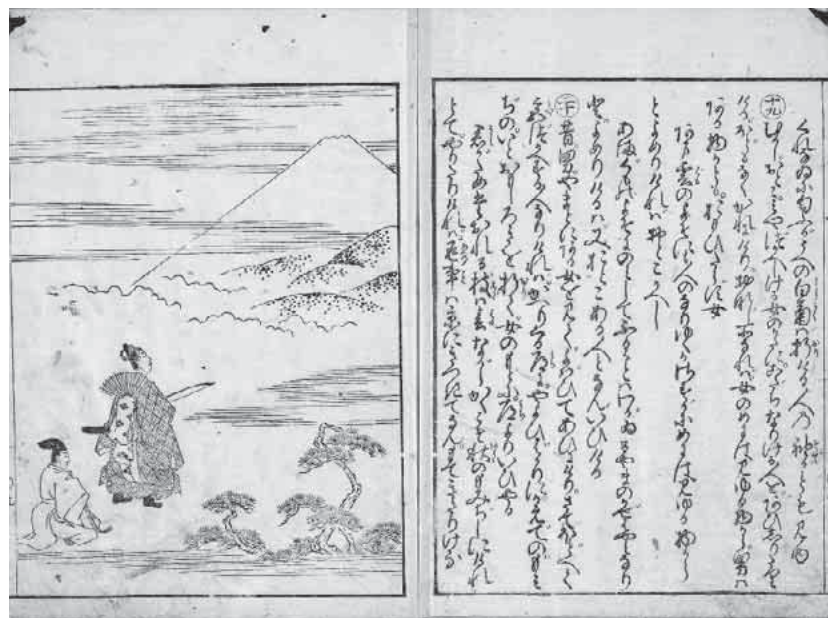 くれなゐに匂ふがうへの白菊は折ける人の袖かとも見ゆ
十九 むかしおとこ宮づかへしける女のかたにごたちなりける人をあひしりたりける
ほどもなくかれにけり同じ所なれば女のめには見ゆる物から男は
ある物かとも思ひたらず女
あま雲のよそにも人のなりゆくかさすがにめには見ゆる物から
とよめりければおとこ返し
あまぐものよそにのみしてふることはわがゐる山の風はやみなり
とよめりけるは又おとこある人となんいひける
二十 昔男やまとにある女を見てよばひてあひにけりさてほどへて
宮づかへする人なりければかへりくる道にやよひばかりにかえでのもみ
ぢのいとおもしろきを折て女のもとに道よりいひやる
君がため手おれる枝は春ながらかくこそ秋のもみぢしにけれ
とてやりたりければ返事は京にきつきてなんもてきたりける